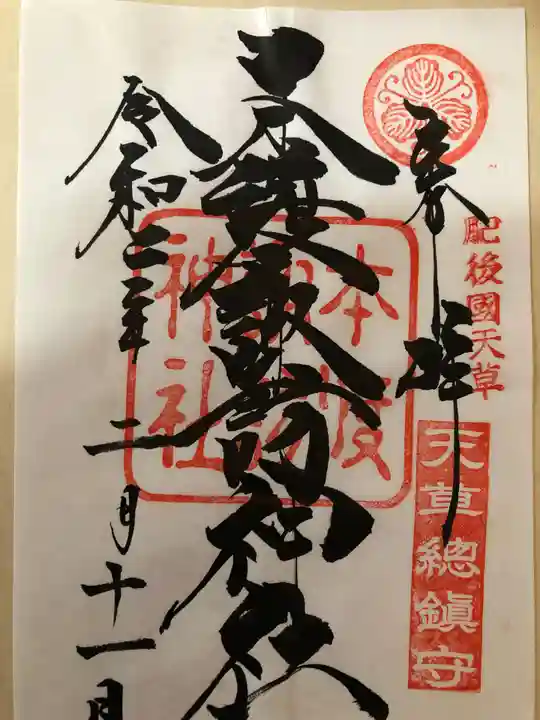 奉拝
肥後國天草
天草總鎮守
本渡諏訪神社
本渡諏訪神社
令和二年二月十一日